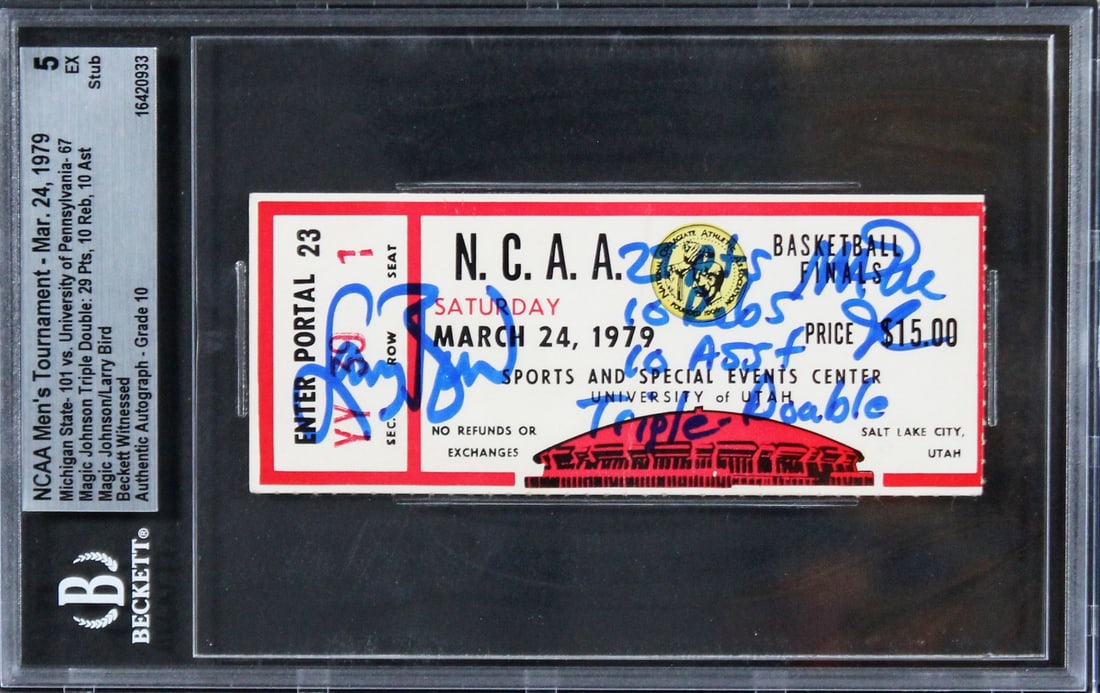 5
EX
Stub
16420933
NCAA Men's Tournament - Mar. 24, 1979
Michigan State- 101 vs. University of Pennsylvania- 67
Magic Johnson Triple Double: 29 Pts, 10 Reb, 10 Ast
Magic Johnson/Larry Bird
Beckett Witnessed
Authentic Autograph - Grade 10
B
BECKETT®
ENTER PORTAL 23
YY 30 1
SEC. ROW SEAT
N. C. A. A.
NATIONAL COLLEGIATE ATHLETIC ASSOCIATION
FOUNDED 1906
BASKETBALL
FINALS
SATURDAY
MARCH 24, 1979
PRICE $15.00
SPORTS AND SPECIAL EVENTS CENTER
UNIVERSITY of UTAH
NO REFUNDS OR
EXCHANGES
SALT LAKE CITY,
UTAH
Larry Bird
29 pts
10 Rebs
10 Asst
Triple-Double